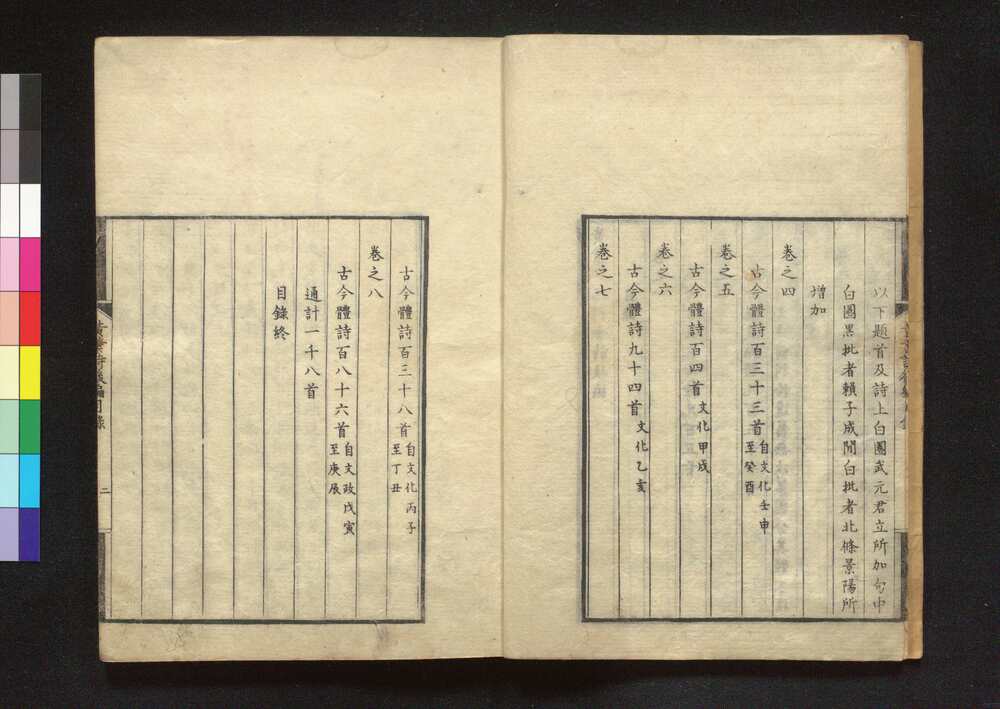 以下題首及詩上白圈武元君立所加句中
白圈黑批者賴子成間白批者北條景陽所
增加
卷之四
古今體詩百三十三首自文化壬申
至癸酉
卷之五
古今體詩百四首文化甲戌
卷之六
古今體詩九十四首文化乙亥
卷之七
古今體詩百三十八首自文化丙子
至丁丑
卷之八
古今體詩百八十六首自文政戊寅
至庚辰
通計一千八首
目錄終
二